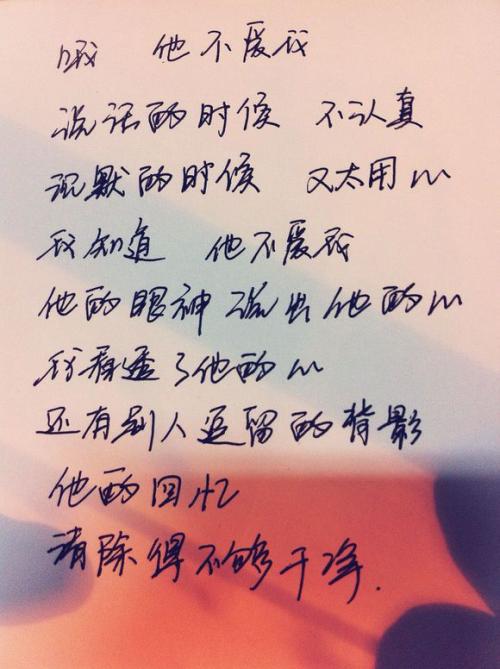 哦 他不爱我
说话的时候 不认真
沉默的时候 又太用心
我知道 他不爱我
他的眼神 说出他的心
我看透了他的心
还有别人逗留的背影
他的回忆
清除得不够干净.